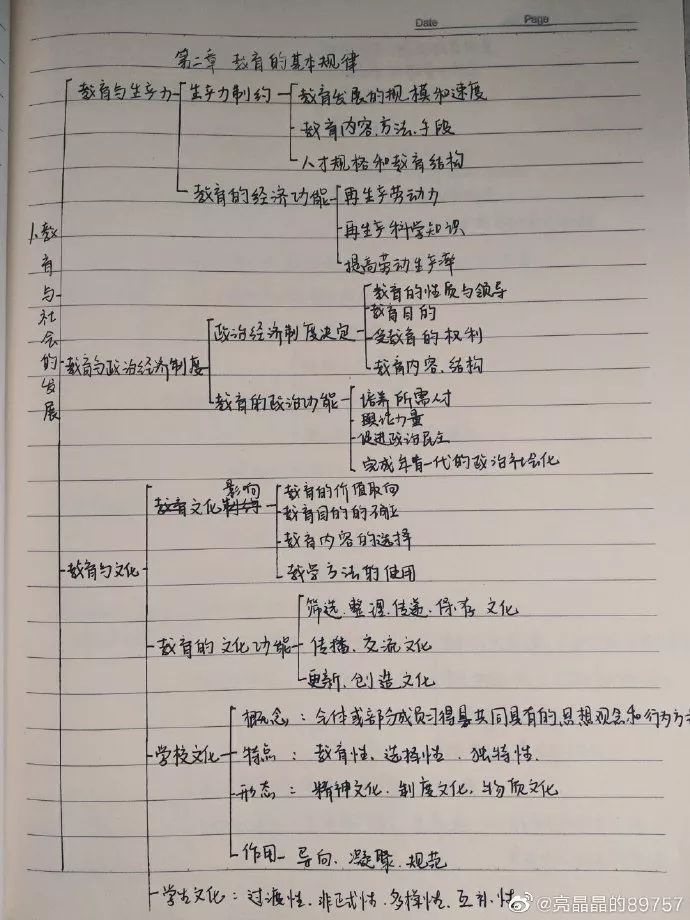 Date Page
第二章 教育的基本规律
教育与生产力
生产力制约
教育发展的规模和速度
教育内容、方法、手段
人才规格和教育结构
教育的经济功能
再生产劳动力
再生产科学知识
提高劳动生产率
1、教育与社会的发展
教育与政治经济制度
政治经济制度决定
教育的性质与领导
教育目的
受教育的权利
教育内容、结构
教育的政治功能
培养所需人才
舆论力量
促进政治民主
完成年青一代的政治社会化
教育与文化
文化影响
教育的价值取向
教育目的的确立
教育内容的选择
教学方法的使用
教育的文化功能
筛选、整理、传递、保存文化
传播、交流文化
更新、创造文化
学校文化
概念：全体或部分成员习得且共同具有的思想观念和行为方
特点：教育性、选择性、独特性.
形态：精神文化、制度文化、物质文化
作用 导向、凝聚、规范
学生文化：过渡性、非正式性、多样性、互补性
@亮晶晶的89757